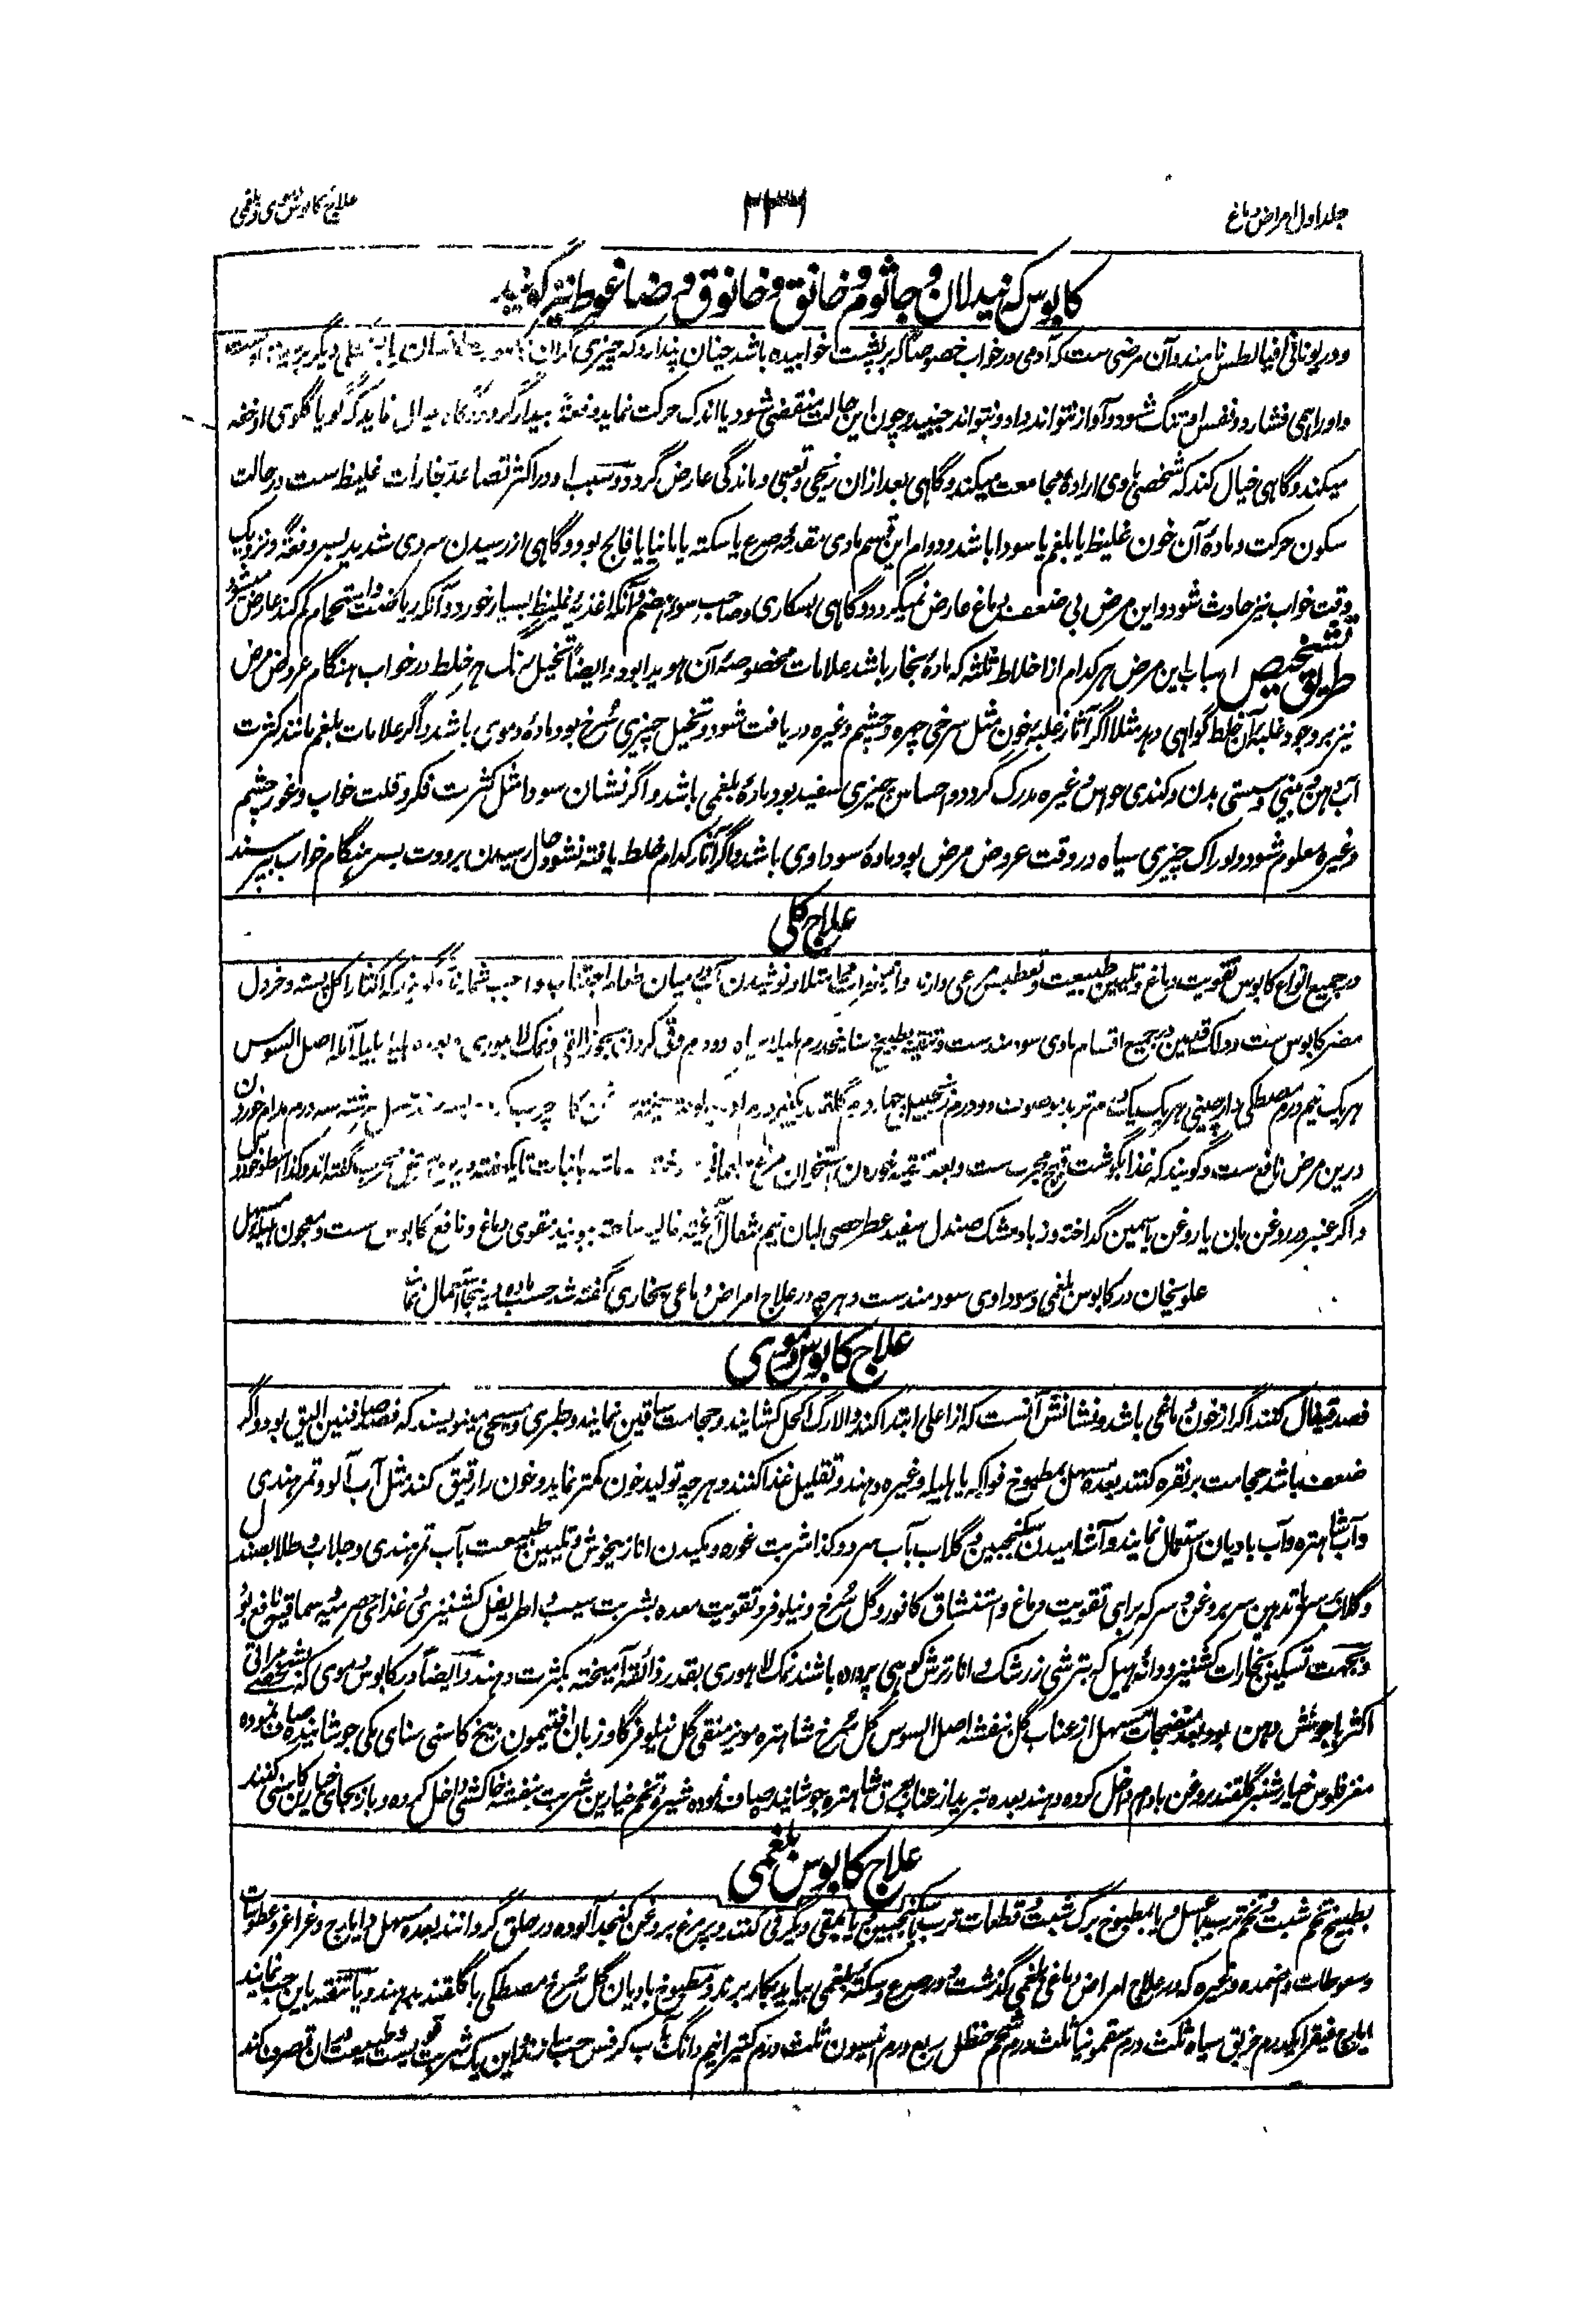 جلد اول امراض دماغ
۳۳۶
علاج کابوس دموی و بلغمی
کابوس که نیدلان و جاثوم و خانق و خانوق و ضاغوط نیز گویند
و در یونانی افیالطس نامند و آن مرضی ست که آدمی در خواب خصوصاً که بر پشت خوابیده باشد چنان پندارد که چیزی گران بصورت انسان یا بشکلی دیگر بر
و او را همی فشارد و نفس او تنگ شود و آواز نتواند داد و نتواند جنبید و چون این حالت منقضی شود یا اندک حرکت نماید دفعةً بیدار گردد و گاه خیال نماید که گویا گلوی او خفه
میکند و گاهی خیال کند که شخصی با وی اراده مجامعت میکند و گاهی بعد ازان رنجی و تعبی و ماندگی عارض گردد و سبب او در اکثر تصاعد بخارات غلیظ ست در حالت
سکون حرکت و مادهٔ آن خون غلیظ یا بلغم یا سودا باشد و دوام این قسم مادی مقدمهٔ صرع یا سکته یا مانیا یا فالج بود و گاهی از رسیدن سردی شدید بسر دفعةً و نزدیک
وقت خواب نیز حادث شود و این مرض بی ضعف دماغ عارض نمیگردد و گاهی بسکاری و صاحب سوء هضم و آنکه اغذیه غلیظ بسیار خورد و آنکه ریاضت و استحمام کم کند عارض میشود
طریق تشخیص اسباب این مرض هر کدام از اخلاط ثلثه که ماده بخار باشد علامات مخصوصه آن هویدا بود و ایضاً تخیل رنگ هر خلط در خواب هنگام عروض مرض
نیز بر وجود غلبه آن خلط گواهی دهد مثلا اگر آثار غلبه خون مثل سرخی چهره و چشم و غیره دریافت شود و تخیل چیزی سُرخ بود ماده دموی باشد و اگر علامات بلغم مانند کثرت
آب دهن و بینی و سستی بدن و کندی حواس و غیره مدرک گردد و احساس چیزی سفید بود ماده بلغمی باشد و اگر نشان سودا مثل کثرت فکر و قلت خواب و غور چشم
و غیره معلوم شود و ادراک چیزی سیاه در وقت عروض مرض بود مادهٔ سوداوی باشد و اگر آثار کدام خلط یافته نشود حال رسیدن برودت بسر هنگام خواب بپرسند
علاج کلی
در جمیع انواع کابوس تقویت دماغ و تلیین طبیعت و تعطیس مرعی دارند و از پر خواری امتلا و نوشیدن آب در میان طعام اجتناب واجب شمارند و گویند که اکثار اکل پسته و خردل
مضر کابوس ست و دلک قدمین در جمیع اقسام مادی سودمندست و تنقیه بطبیخ سنا پنجدرم هلیله سیاه دو درم و قی کردن بجوز القی و نمک لاهوری و بعده هلیله بلیله آمله اصل السوس
هر یک نیم درم مصطکی دارچینی هر یک یک درم تربد موصوف دو درم زنجبیل چهار درم سرشته سه درم مدام خوردن
درین مرض نافع ست و گویند که غذا بگوشت قبج مجرب ست و بعد تنقیه خوردن استخوان مرغ سوخته ماشه با نبات تا یکهفته گفته اند و کذا اسطوخودوس
و اگر عنبر در روغن بان یا روغن یاسمین گداخته و زباد مشک صندل سفید عطر حصی لبان نیم مثقال آمیخته غالیه ساخته ببویند مقوی دماغ و نافع کابوس ست و معجون مسهل
علویخان در کابوس بلغمی و سوداوی سودمندست و هر چه در علاج امراض دماغی بخاری گفته شد حسب ماده اینجا استعمال نمایند
علاج کابوس دموی
فصد قیفال کنند اگر از خون دماغی باشد و نشانش آنست که از اعلی ابتدا کند و الا رگ اکحل کشایند و حجامت ساقین نمایند و طبری و مسیحی مینویسند که فصد صافنین الیق بود و اگر
ضعف باشد حجامت بر نقره کنند بعده مسهل مطبوخ فواکه یا هلیله و غیره دهند و تقلیل غذا کنند و هر چه تولید خون کمتر نماید و خون را رقیق کند مثل آب آلو و تمر هندی
و آب شاهتره و آب بادیان استعمال نمایند و آشامیدن سکنجبین و گلاب بآب سرد و کذا شربت غوره و مکیدن انار میخوش و تلیین طبیعت بآب تمر هندی و جلاب و طلا بصندل
و گلاب بر سر و تدهین سر بروغن و سرکه برای تقویت دماغ و استنشاق کافور و گل سُرخ و نیلوفر و تقویت معده بشربت سیب و اطریفل کشنیزی و غذای حصرمیه سماقیه نافع بود
و بجهت تسکین بخارات کشنیز و دانه هیل که بترشی زرشک و انار ترش کوهی پرورده باشند نمک لاهوری بقدر ذائقه آمیخته بکثرت دهند و ایضاً در کابوس دموی که شخصی مراقی
اکثر با جوشش دهن بود بعد منضجات مسهل از عناب گل بنفشه اصل السوس گل سُرخ شاهتره مویز منقی گل نیلوفر گاوزبان افتیمون بیخ کاسنی سنای مکی جوشانیده صاف نموده
مغز فلوس خیارشنبر گلقند روغن بادام داخل کرده دهند بعده تبرید از عناب بعرق شاهتره جوشانیده صاف نموده شیره تخم خیارین شربت بنفشه خاکشی داخل کرده و باز بجای خیارین کاسنی کنند
علاج کابوس بلغمی
بطبیخ تخم شبت و تخم ترب بعسل و یا بمطبوخ برگ شبت و قطعات ترب بسکنجبین و یا بمقی دیگر قی کنند و پر مرغ بروغن کنجد آلوده در حلق گردانند بعده مسهل و ایارج و غراغر و عطوسات
و سعوطات و ضمده و غیره که در علاج امراض دماغی بلغمی گذشت و در صرع و سکتهٔ بلغمی بیاید بکار برند و مطبوخ بادیان گل سُرخ مصطکی با گلقند بدهند و یا تنقیه باین حب نمایند
ایارج فیقرا یکدرم خربق سیاه ثلث درم سقمونیا ثلث درم شحم حنظل ربع درم انیسون ثلث درم کتیرا نیم دانگ بآب کرفس حب سازند و این یک شربت